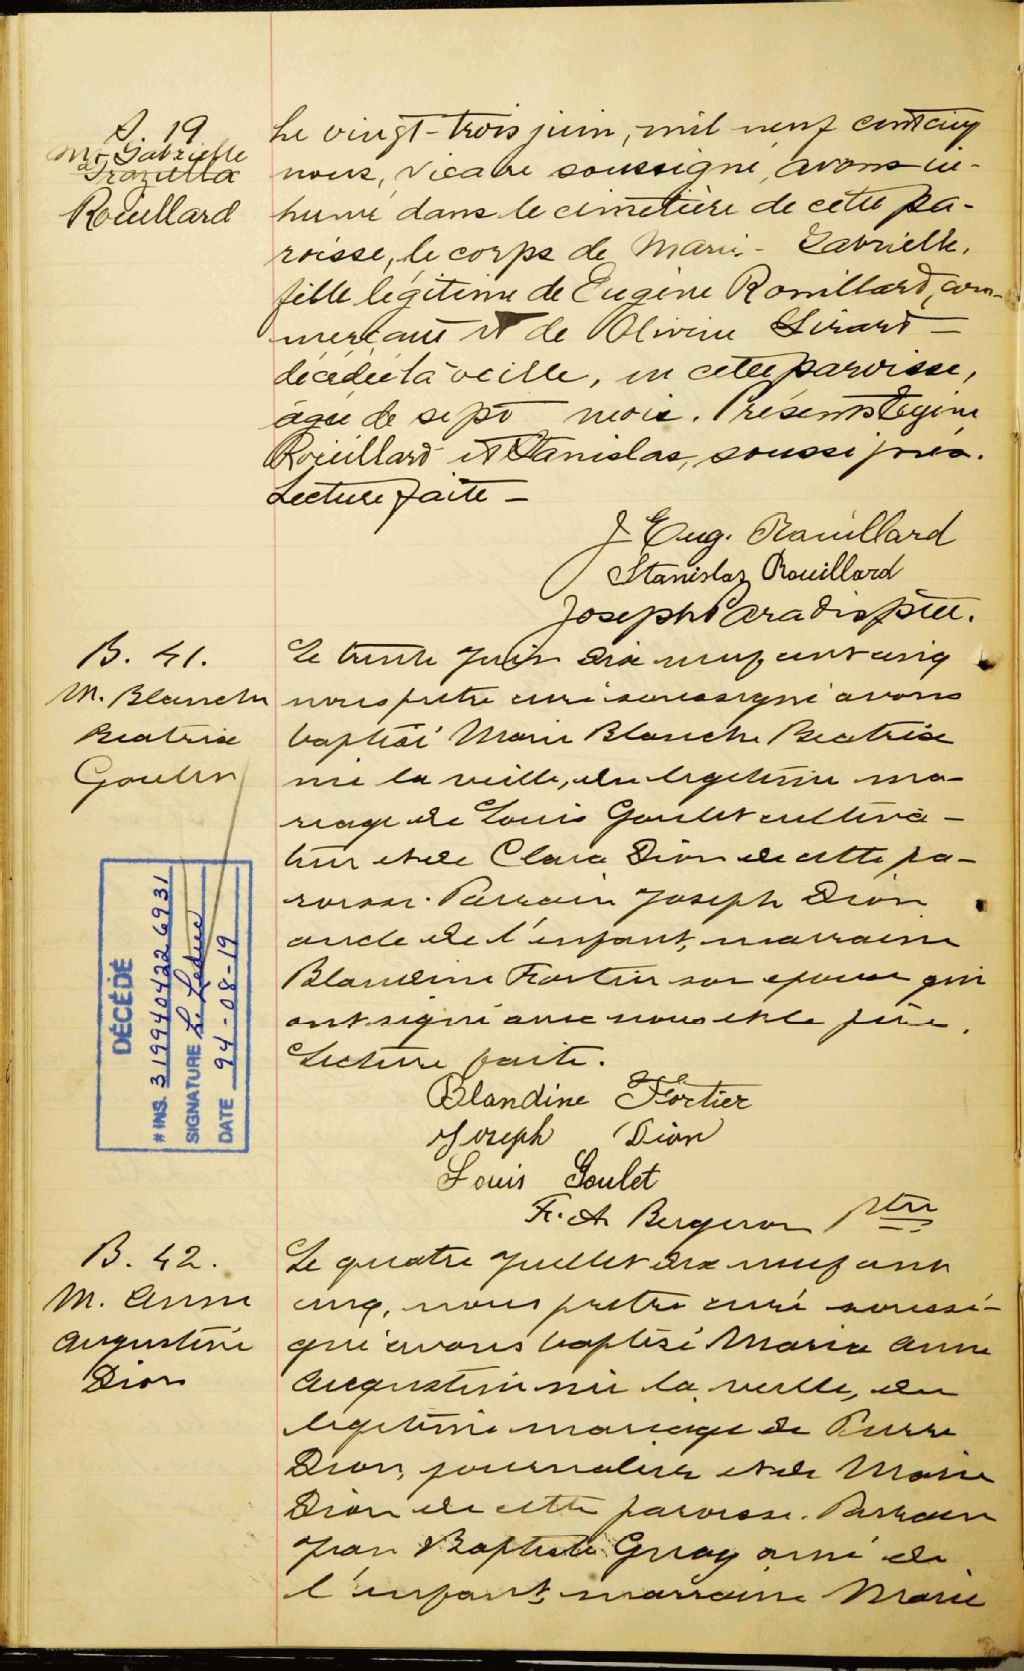 S. 19
M. Gabrielle
Graziella
Rouillard
Le vingt-trois juin, mil neuf cent cinq
nous, vicaire soussigné, avons in-
humé dans le cimetière de cette pa-
roisse, le corps de Marie-Gabrielle,
fille légitime de Eugène Rouillard, com-
merçant et de Olivine Girard —
décédée la veille, en cette paroisse,
âgée de sept mois. Présents Eugène
Rouillard et Stanislas, soussignés.
Lecture faite —
J Eug. Rouillard
Stanislas Rouillard
Joseph Paradis ptre.
B. 41.
M. Blanche
Beatrix
Goulet
Le trente Juin dix neuf cent cinq
nous pretre curé soussigné avons
baptisé Marie Blanche Beatrix
née la veille, du legitime ma-
riage de Louis Goulet cultiva-
teur et de Clara Dion de cette pa-
roisse. Parrain Joseph Dion
oncle de l'enfant, marraine
Blandine Fortier son epouse qui
ont signé avec nous et le père.
Lecture faite.
Blandine Fortier
Joseph Dion
Louis Goulet
F. A. Bergeron Ptre
DÉCÉDÉ
# INS. 3199404226931
SIGNATURE L. Leduc
DATE 94-08-19
B. 42.
M. Anne
Augustine
Dion
Le quatre Juillet dix neuf cent
cinq, nous pretre curé soussi-
gné avons baptisé Maria Anne
Augustine née la veille, du
legitime mariage de Pierre
Dion, journalier et de Marie
Dion de cette paroisse. Parrain
Jean Baptiste Guay ami de
l'enfant, marraine Marie